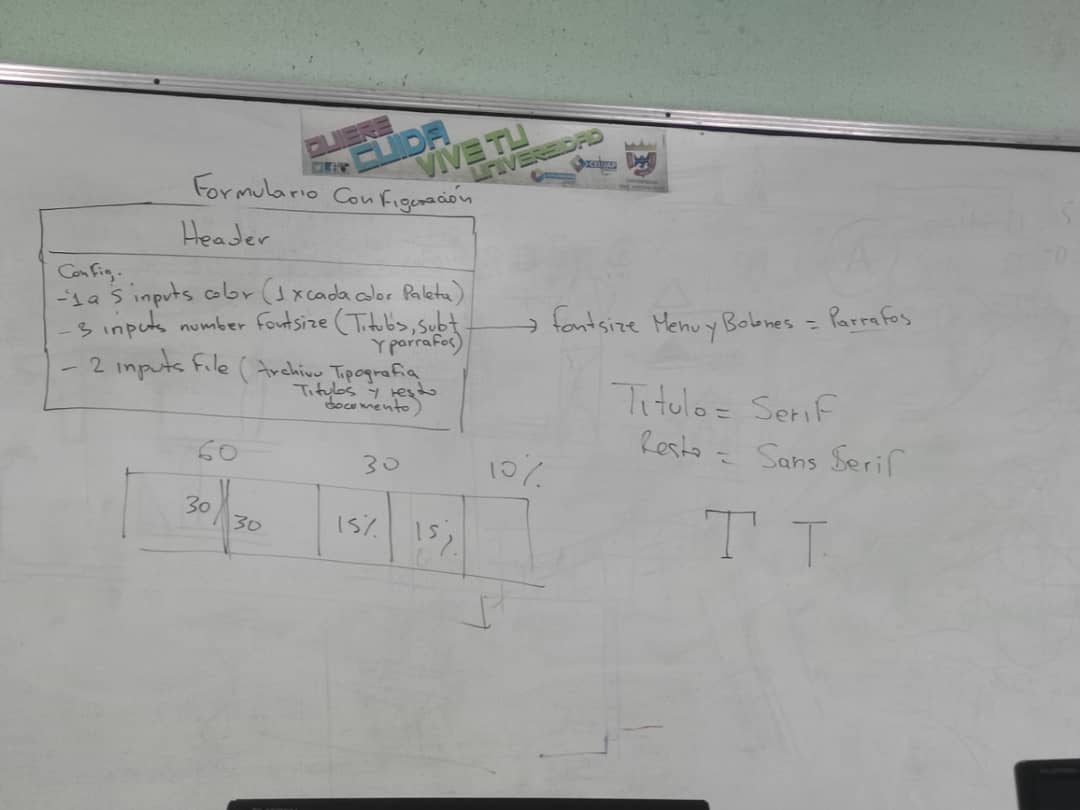 QUIERE
CUIDA
VIVE TU
UNIVERSIDAD
Formulario Configuración
Header
Config.
- 1 a 5 inputs color (1 x cada color Paleta)
- 3 inputs number fontsize (Titulos, subt
y parrafos)
→ fontsize Menu y Botones = Parrafos
- 2 inputs File (Archivo Tipografia
Titulos y resto
documento)
Titulo = Serif
Resto = Sans Serif
60 30 10%
30 30 15% 15%
T T